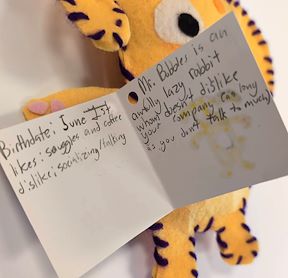 Birthdate: June 1st
likes: snuggles and coffee
dislike: socializing/talking
Mr. Bubbles is an
awfully lazy rabbit
whom doesn't dislike
your company so long
as you don't talk to much!